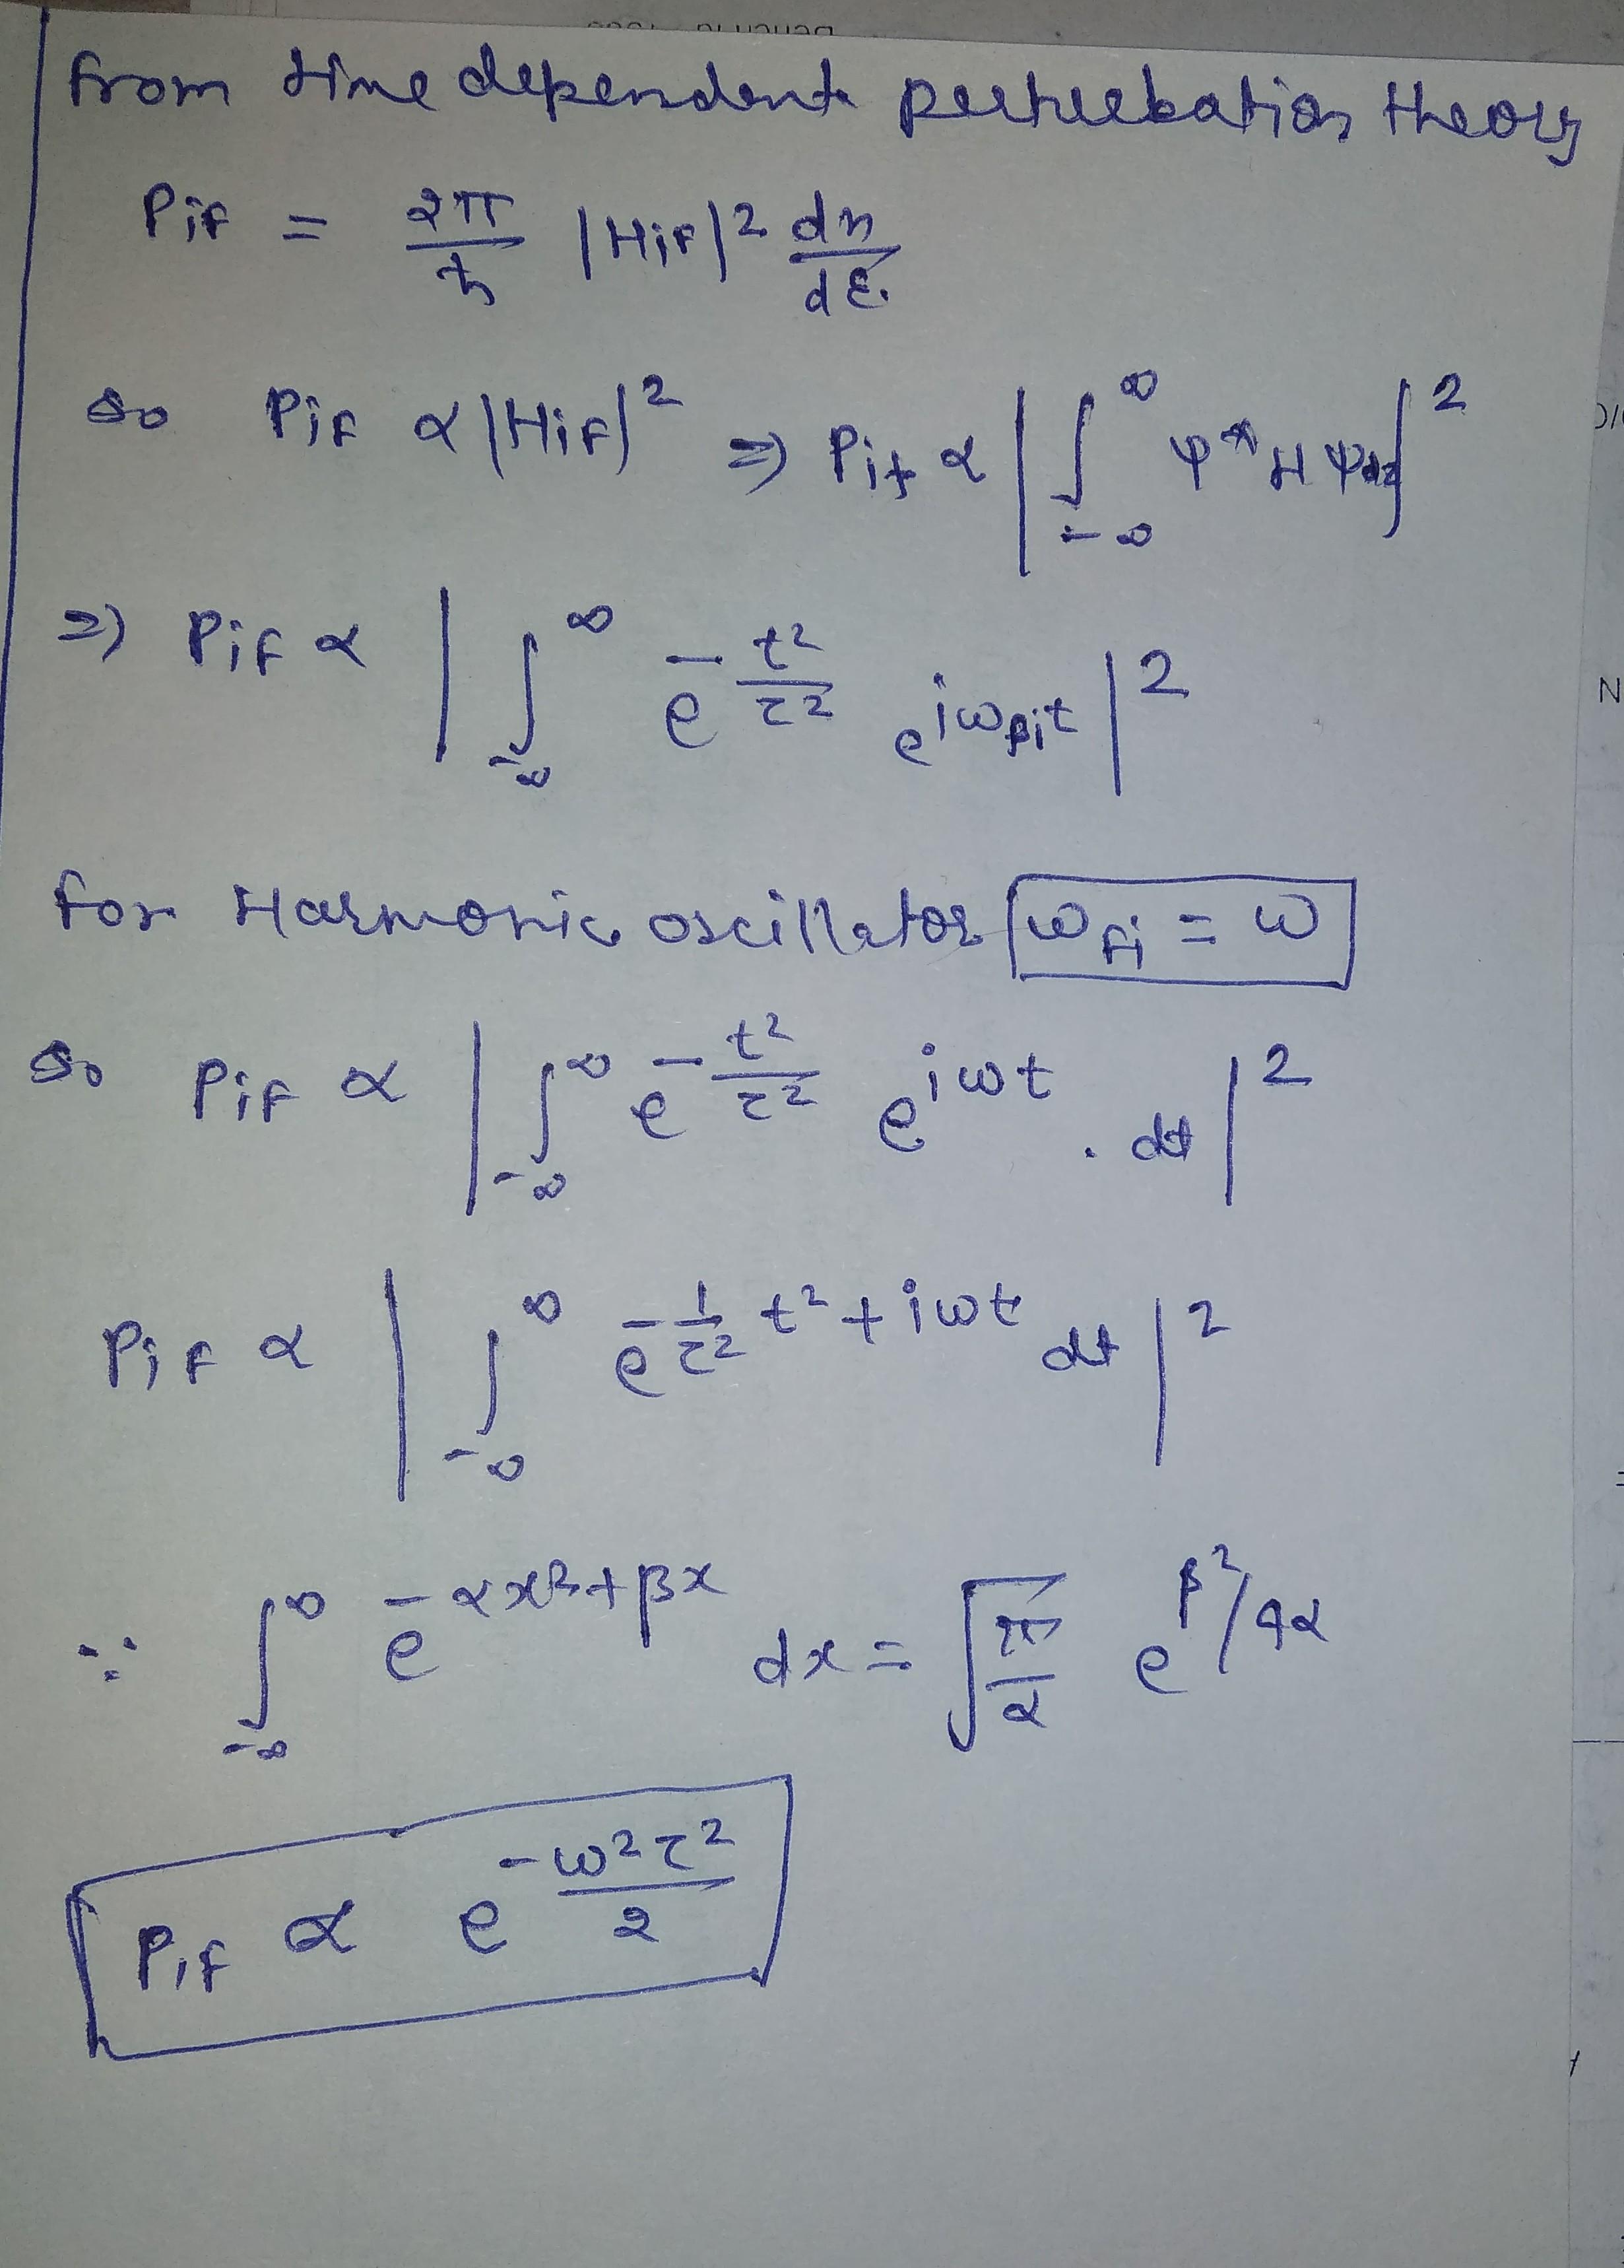 from time dependent perturbation theory
Pif = 2π/ħ |Hif|² dn/dE.
so Pif α |Hif|² => Pif α |∫_{-∞}^{∞} ψ* H ψ dz|²
=> Pif α |∫_{-∞}^{∞} e^{-t²/τ²} e^{iω_{fi}t}|²
for Harmonic oscillator ω_{fi} = ω
so Pif α |∫_{-∞}^{∞} e^{-t²/τ²} e^{iωt} . dt|²
Pif α |∫_{-∞}^{∞} e^{-1/τ² t² + iωt} dt|²
∵ ∫_{-∞}^{∞} e^{-αx²+βx} dx = √(π/α) e^{β²/4α}
Pif α e^{-ω²τ²/2}